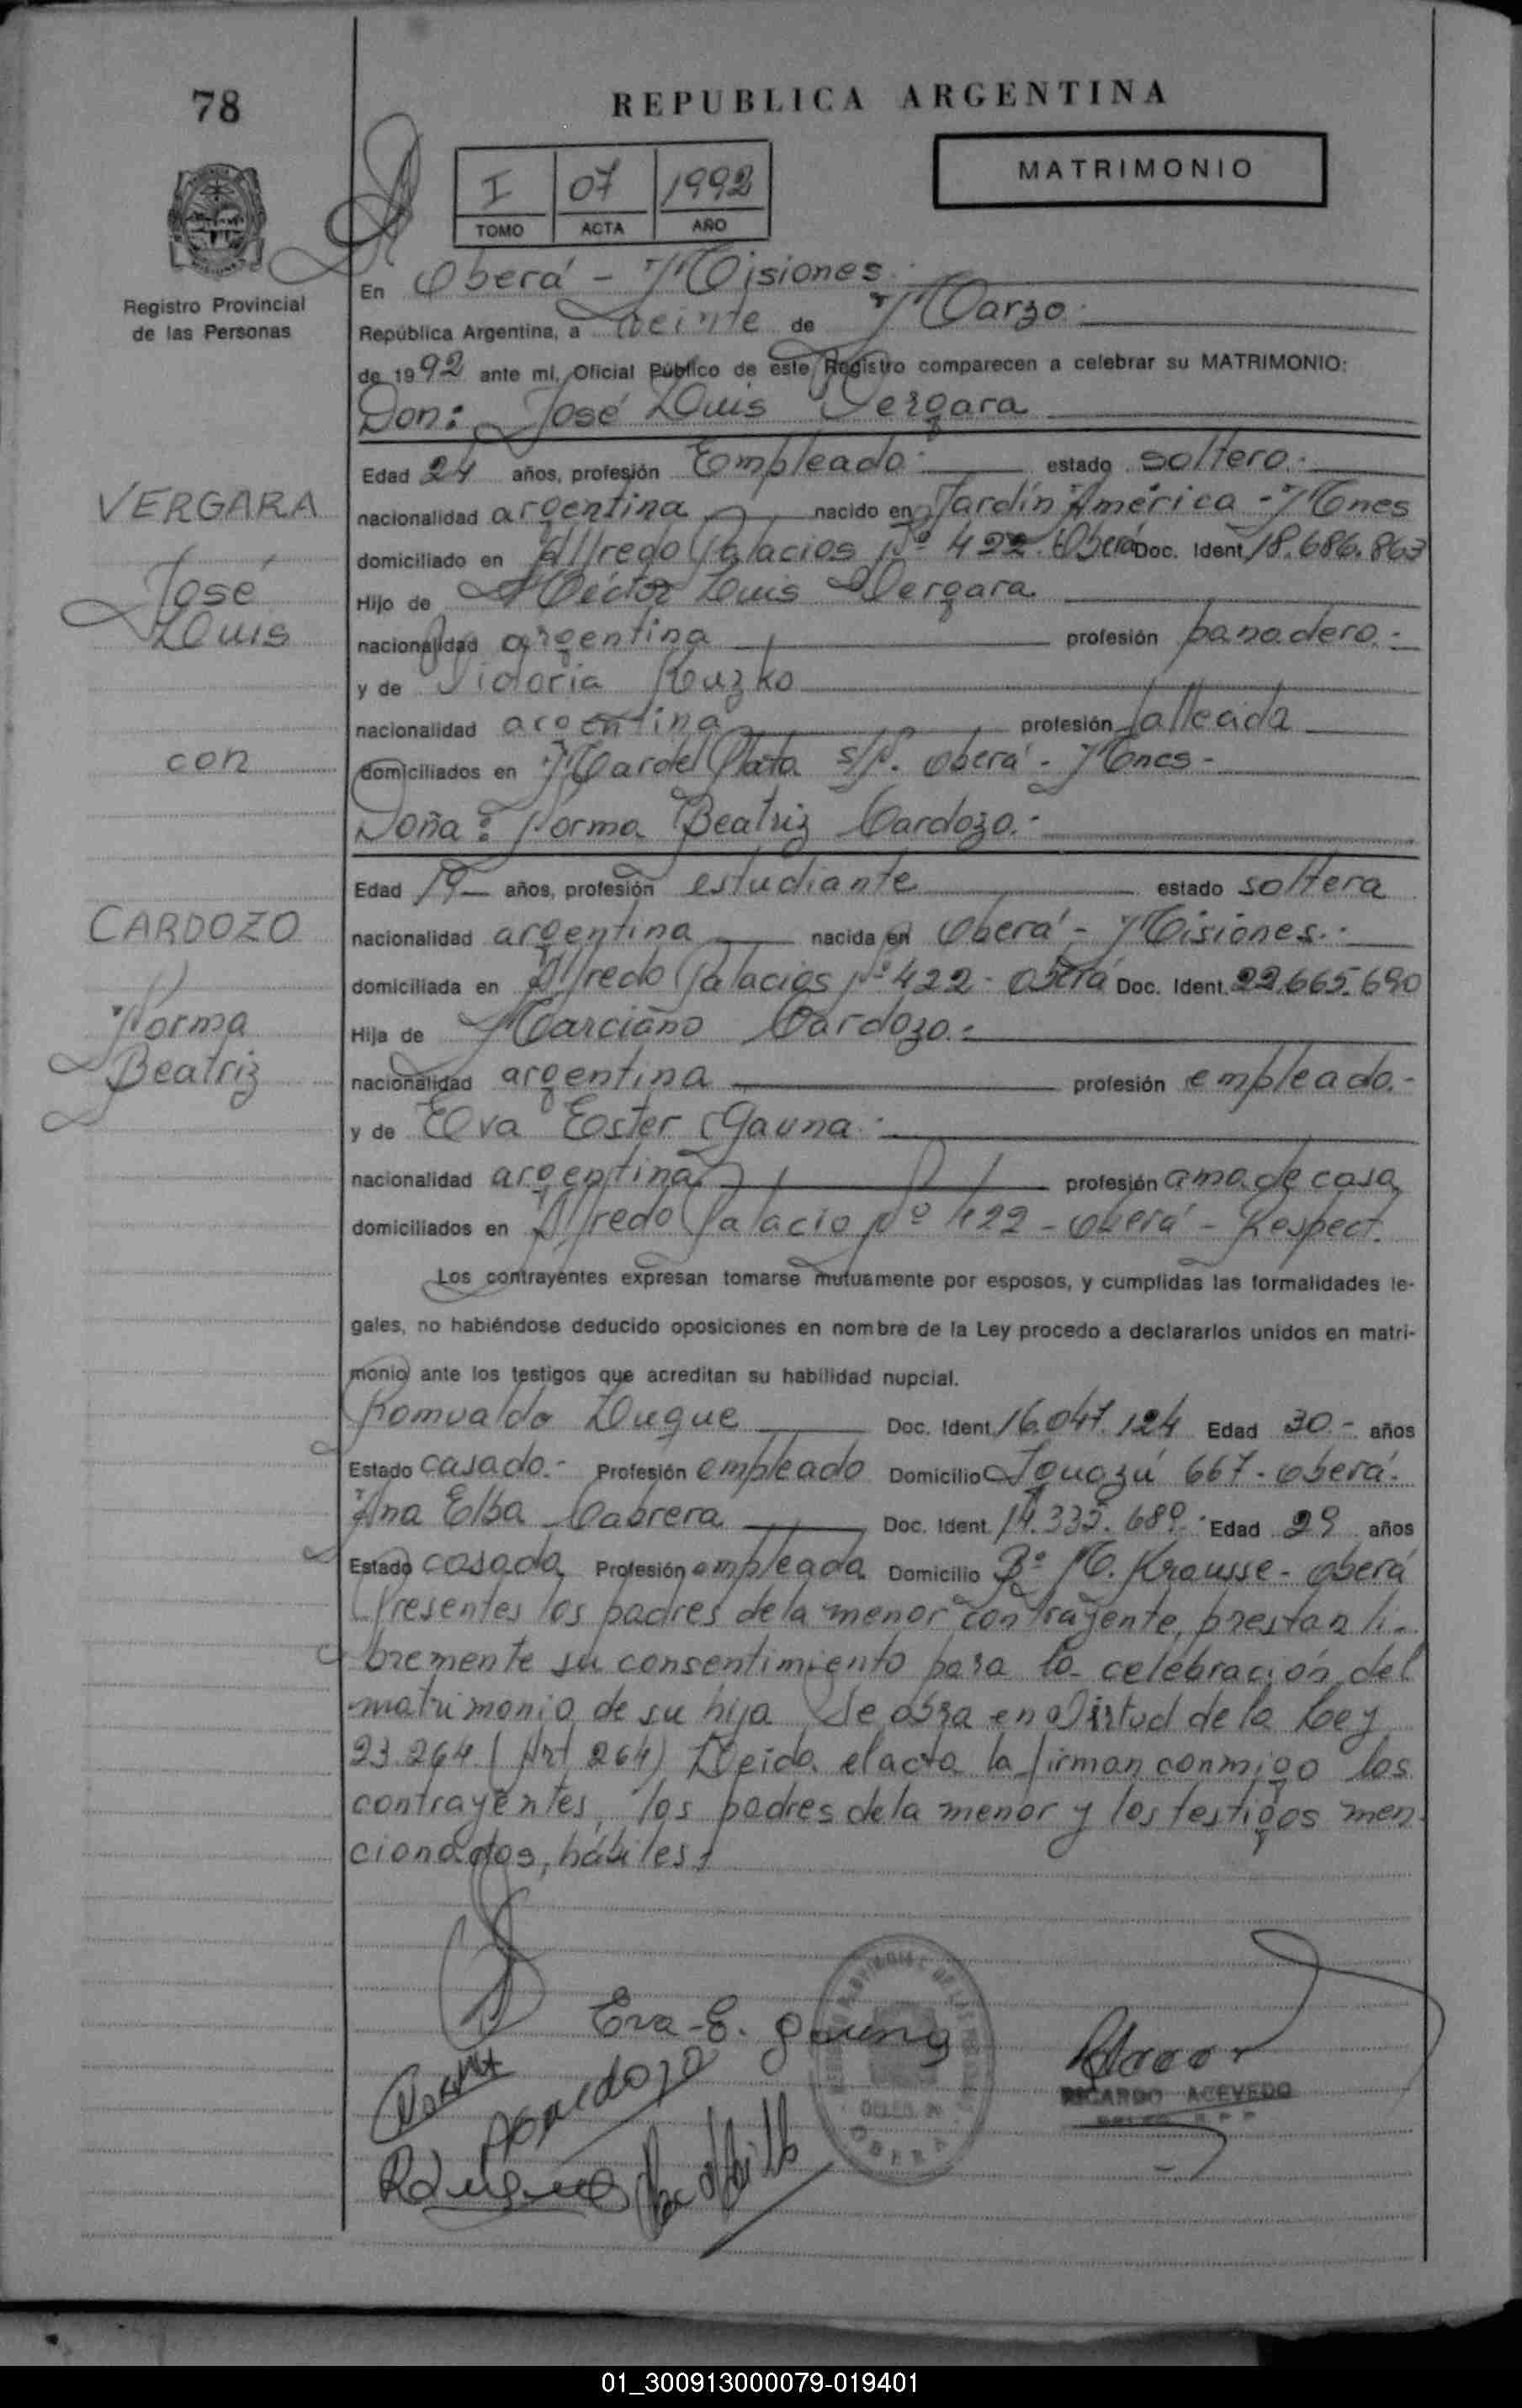 78
REPUBLICA ARGENTINA
MATRIMONIO
I 07 1992
TOMO ACTA AÑO
Registro Provincial
de las Personas
En Oberá - Misiones.
República Argentina, a treinte de Marzo.
de 1992 ante mí, Oficial Público de este Registro comparecen a celebrar su MATRIMONIO:
Don: José Luis Vergara
Edad 24 años, profesión Empleado. estado soltero.-
VERGARA
José
Luis
con
nacionalidad argentina nacido en Jardín América - Mones
domiciliado en Alfredo Palacios Nº 422. Oberá Doc. Ident. 18.686.863
Hijo de Héctor Luis Vergara
nacionalidad argentina profesión panadero.-
y de Victoria Kuzko
nacionalidad argentina profesión fallecida
domiciliados en Mar del Plata s/Nº. Oberá - Mones -
Doña: Norma Beatriz Cardozo.-
Edad 19 años, profesión estudiante estado soltera
CARDOZO
Norma
Beatriz
nacionalidad argentina nacida en Oberá - Misiones.-
domiciliada en Alfredo Palacios Nº 422 - Oberá Doc. Ident. 22.665.690
Hija de Marciano Cardozo.-
nacionalidad argentina profesión empleado.-
y de Eva Ester Gauna.-
nacionalidad argentina profesión ama de casa
domiciliados en Alfredo Palacio Nº 422 - Oberá - Respect.
Los contrayentes expresan tomarse mutuamente por esposos, y cumplidas las formalidades le-
gales, no habiéndose deducido oposiciones en nombre de la Ley procedo a declararlos unidos en matri-
monio ante los testigos que acreditan su habilidad nupcial.
Romualdo Duque Doc. Ident. 16.047.124 Edad 30.- años
Estado casado.- Profesión empleado Domicilio Iguazú 667 - Oberá.
Ana Elba Cabrera Doc. Ident. 14.335.689. Edad 29 años
Estado casada Profesión empleada Domicilio Bº M. Krausse - Oberá
Presentes los padres de la menor contrayente, prestan li-
bremente su consentimiento para la celebración del
matrimonio de su hija Se obra en Virtud de la Ley
23.264 (Art 264) Leida el acta la firman conmigo los
contrayentes, los padres de la menor y los testigos men-
cionados, hábiles.
Eva E. Gauna
Cardozo
OBERA
RICARDO ACEVEDO
01_300913000079-019401